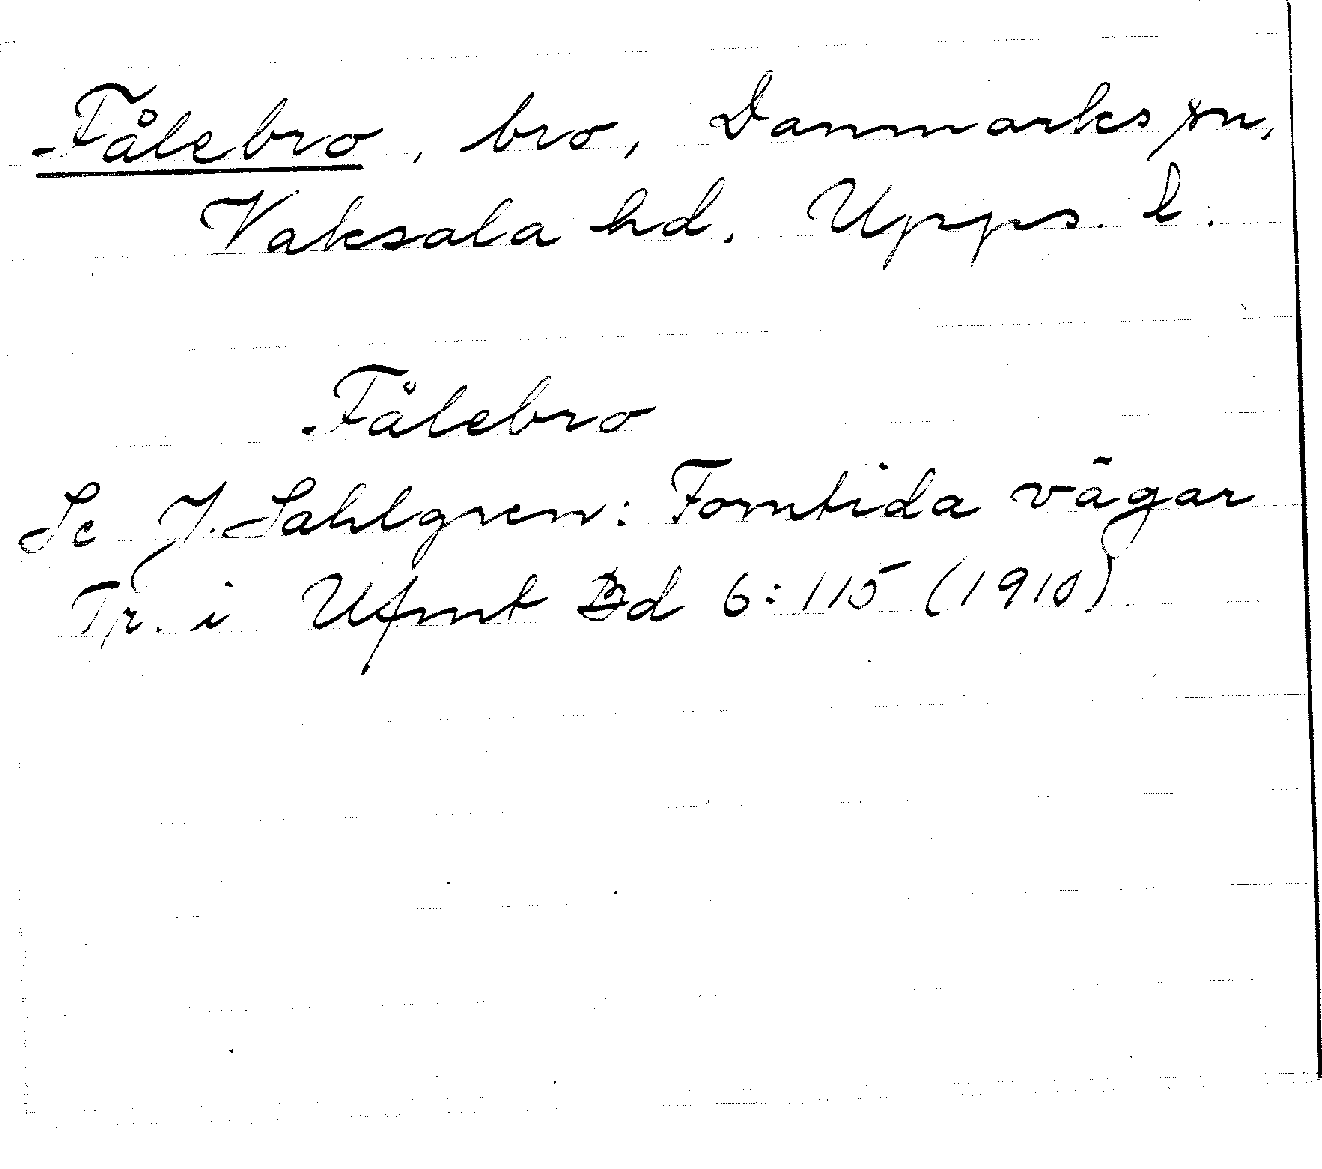 Fålebro, bro, Danmarks sn,
Vaksala hd. Upps. l.
Fålebro
Se J. Sahlgren: Forntida vägar
Tr. i Ufmt Bd 6:115 (1910)